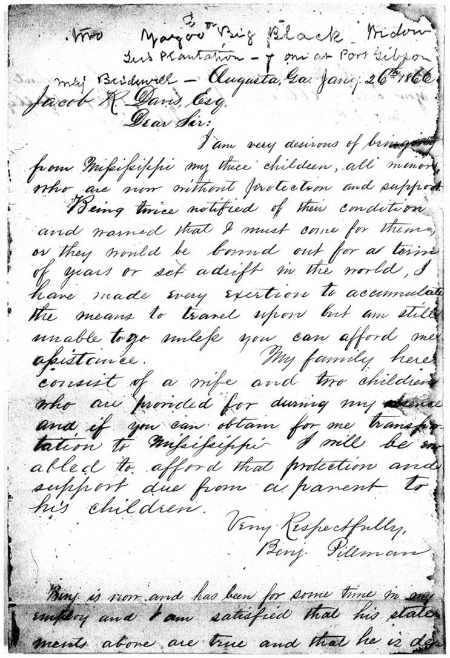 two Yazoo on Big Black Widow
Plantation - & one at Port Gibson
Maj Bridwell - Augusta, Ga. Jany. 26th 1866
Jacob R. Davis, Esq.
Dear Sir:
I am very desirous of bringing
from Mississippi my three children, all minors
who are now without protection and support
Being twice notified of their condition
and warned that I must come for them,
or they would be bound out for a term
of years or set adrift in the world, I
have made every exertion to accumulate
the means to travel upon but am still
unable to go unless you can afford me
assistance. My family here
consist of a wife and two children
who are provided for during my absence
and if you can obtain for me transpor
tation to Mississippi I will be en
abled to afford that protection and
support due from a parent to
his children.
Very Respectfully,
Benj. Pillman
Benj. is now and has been for some time in my
employ and I am satisfied that his state
ments above are true and that he is